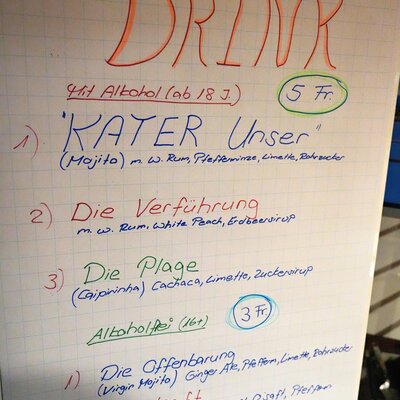 DRINK
Mit Alkohol (ab 18 J.) 5 Fr.
1) "KATER Unser"
(Mojito) m. W. Rum, Pfefferminze, Limette, Rohrzucker
2) Die Verführung
m. W. Rum, White Peach, Erdbeersirup
3) Die Plage
(Caipirinha) Cachaca, Limette, Zuckersirup
Alkoholfrei (16+) 3 Fr.
1) Die Offenbarung
(Virgin Mojito) Ginger Ale, Pfefferm, Limette, Rohrzucker
saft, Pfefferm